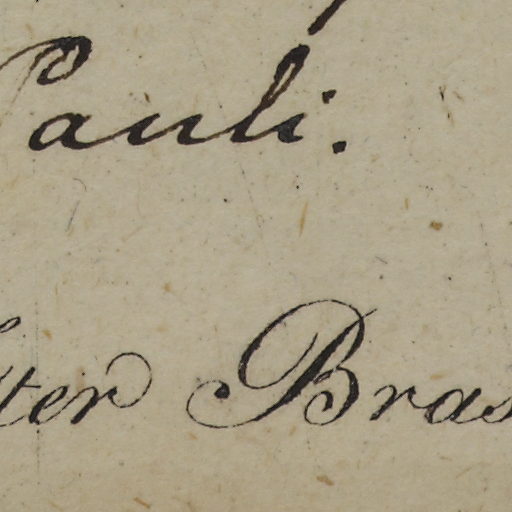 Pauli.
ter Bras